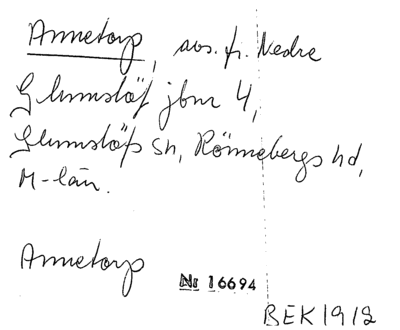 Annetorp, avs. fr. Nedre
Glumslöf jbnr 4,
Glumslöfs sn, Rönnebergs hd,
M-län.
Annetorp
Nr 16694
BEK 1912